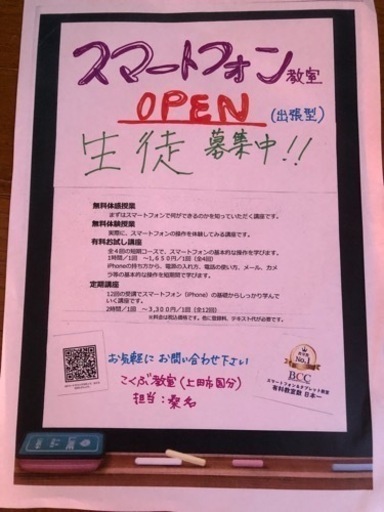 スマートフォン教室
OPEN(出張型)
生徒募集中!!
無料体感授業
まずはスマートフォンで何ができるのかを知っていただく講座です。
無料体験授業
実際に、スマートフォンの操作を体験してみる講座です。
有料お試し講座
全4回の短期コースで、スマートフォンの基本的な操作を学びます。
1時間/1回 ~1,650円/1回(全4回)
iPhoneの持ち方から、電源の入れ方、電話の使い方、メール、カメ
ラ等の基本的な操作を短期間で学びます。
定期講座
12回の受講でスマートフォン(iPhone)の基礎からしっかり学んで
いく講座です。
2時間/1回 ~3,300円/1回(全12回)
※料金は税込価格です。他に登録料、テキスト代が必要です。
お気軽にお問い合わせ下さい
こくぶ教室(上田市国分)
担当:桑名
No.1
BCC
スマートフォン&タブレット教室
有料教室数 日本一